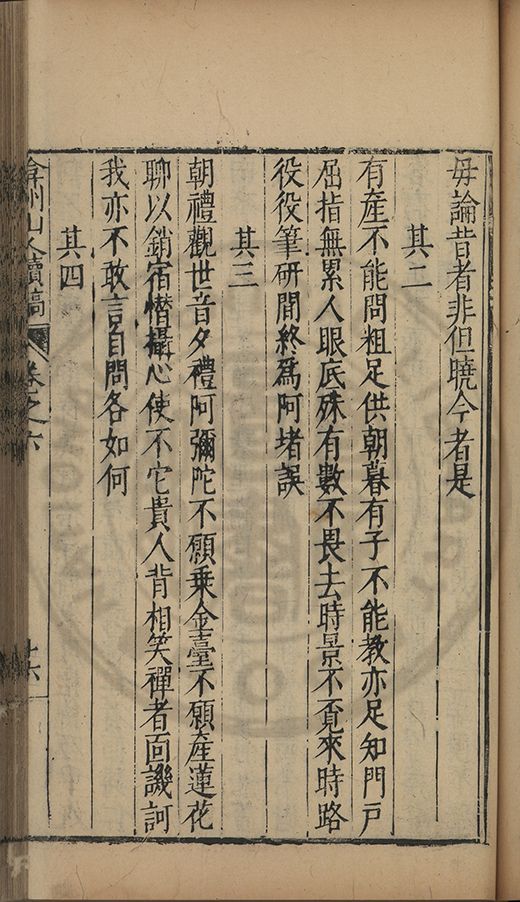 毋論昔者非但曉今者是
其二
有產不能問粗足供朝暮有子不能教亦足知門戶
屈指無累人眼底殊有數不畏去時景不覔來時路
役役筆研間終爲阿堵誤
其三
朝禮觀世音夕禮阿彌陀不願乗金臺不願產蓮花
聊以銷宿㦧攝心使不它貴人背相笑禪者面譏訶
我亦不敢言自問各如何
其四
弇州山人續稿 卷之六 十六